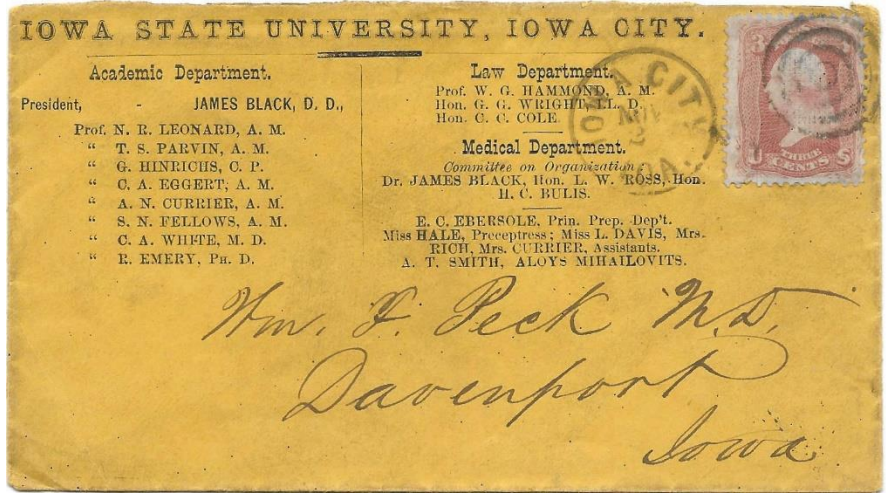 IOWA STATE UNIVERSITY, IOWA CITY.
Academic Department.
President, - JAMES BLACK, D. D.,
Prof. N. R. LEONARD, A. M.
“ T. S. PARVIN, A. M.
“ G. HINRICHS, C. P.
“ C. A. EGGERT, A. M.
“ A. N. CURRIER, A. M.
“ S. N. FELLOWS, A. M.
“ C. A. WHITE, M. D.
“ R. EMERY, PH. D.
Law Department.
Prof. W. G. HAMMOND, A. M.
Hon. G. G. WRIGHT, LL. D.
Hon. C. C. COLE.
Medical Department.
Committee on Organization;
Dr. JAMES BLACK, Hon. L. W. ROSS, Hon.
H. C. BULIS.
E. C. EBERSOLE, Prin. Prep. Dep't.
Miss HALE, Preceptress; Miss L. DAVIS, Mrs.
RICH, Mrs. CURRIER, Assistants.
A. T. SMITH, ALOYS MIHAILOVITS.
IOWA CITY
NOV
2
IOA.
3
U S
THREE
CENTS
Wm. F. Peck M.D.
Davenport
Iowa